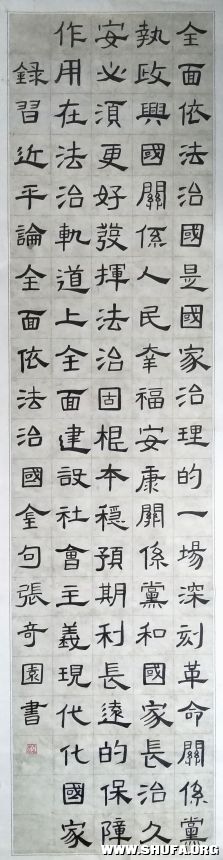 全面依法治國是國家治理的一場深刻革命關係黨
執政興國關係人民幸福安康關係黨和國家長治久
安必須更好發揮法治固根本穩預期利長遠的保障
作用在法治軌道上全面建設社會主義現代化國家
録習近平論全面依法治國全句張奇園書
WWW.SHUFA.ORG